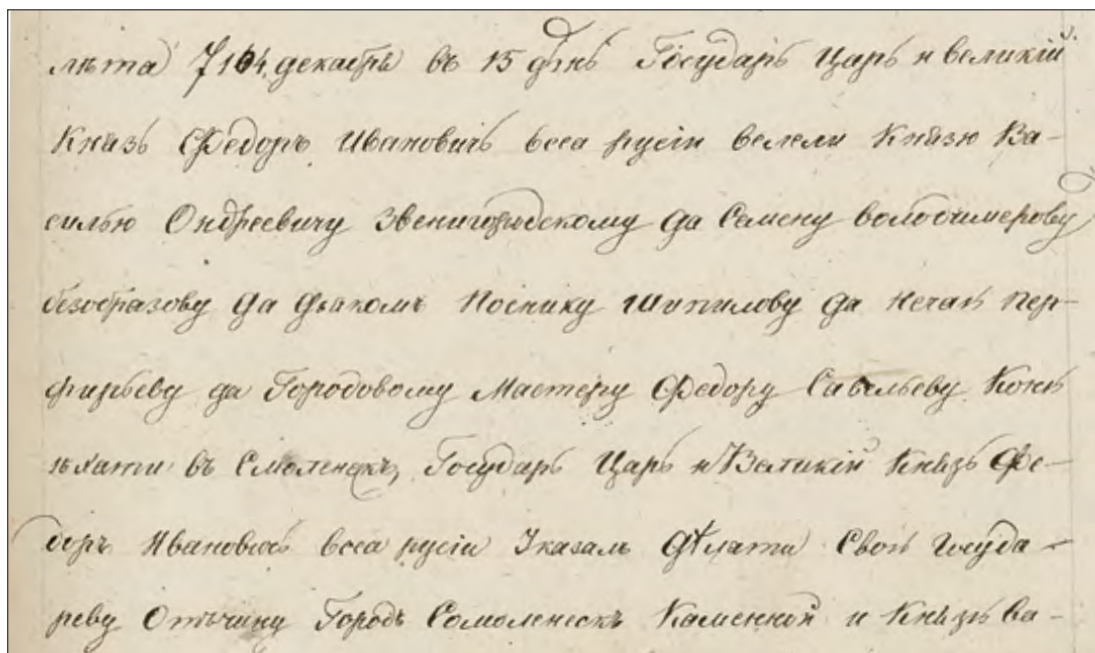 лѣта 7104 декабрь въ 15 дѣнь Государь Царь и великій
Князь Ѳедоръ Ивановичь всеа русіи велели Князю Ва-
силью Ондреевичу Звенигородскому да Семену володимерову
безобразову да дьякомъ Поснику Шипилову да нечаю пер-
фирьеву да Городовому Мастеру Ѳедору Савельеву Коню
ѣхати въ Смоленскъ, Государь Царь и Великій Князь Ѳе-
доръ Ивановичь всеа русіи Указалъ дѣлати Свою Госуда-
реву Отъчину Городъ Сомоленескъ Каменной и Князь ва-